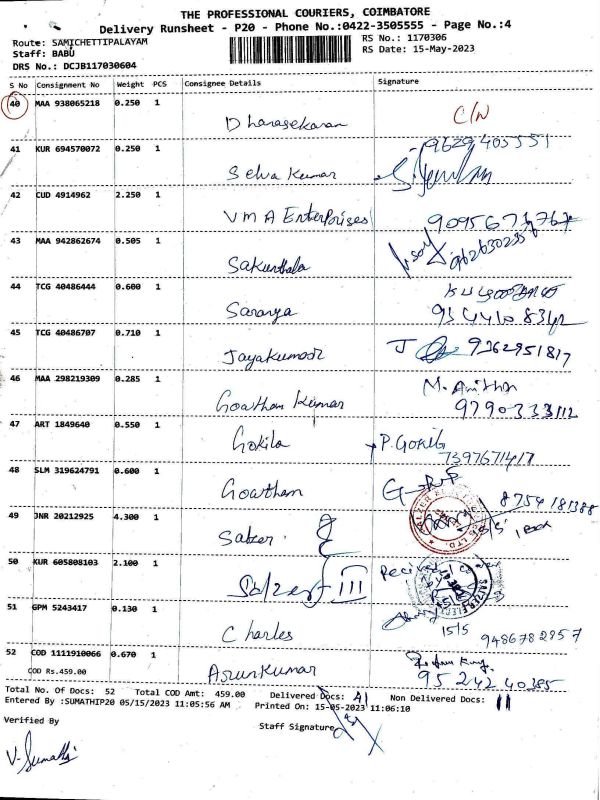 THE PROFESSIONAL COURIERS, COIMBATORE
Delivery Runsheet - P20 - Phone No.:0422-3505555 - Page No.:4
Route: SAMICHETTIPALAYAM
RS No.: 1170306
Staff: BABU
RS Date: 15-May-2023
DRS No.: DCJB117030604
S No Consignment No Weight PCS Consignee Details Signature
40 MAA 938065218 0.250 1 Dharasekaran C/N
41 KUR 694570072 0.250 1 Selva Kumar 9629405551
42 CUD 4914962 2.250 1 VMA Enterprises
43 MAA 942862674 0.505 1 Sakunthala
44 TCG 40486444 0.600 1 Saranya
45 TCG 40486707 0.710 1 Jayakumar J 9362951817
46 MAA 298219309 0.285 1 Gowtham Kumar M. Anitha
9790333112
47 ART 1849640 0.550 1 Gokila P. Gokila
7397671417
48 SLM 319624791 0.600 1 Gowtham
8754181388
49 JNR 20212925 4.300 1 Salzer
50 KUR 605808103 2.100 1 Salzer III
51 GPM 5243417 0.130 1 Charles
15/5 9486782957
52 COD 1111910066 0.670 1 Arunkumar
COD Rs.459.00
95242 40385
Total No. Of Docs: 52 Total COD Amt: 459.00 Delivered Docs: 41 Non Delivered Docs: 11
Entered By :SUMATHIP20 05/15/2023 11:05:56 AM Printed On: 15-05-2023 11:06:10
Verified By
Staff Signature
V. Sumathi